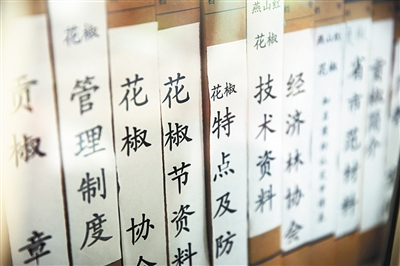 贡椒 章
花椒 管理制度
花椒 协会
花椒节资料
花椒 特点及防
燕山红 花椒 技术资料
经济林协会
燕山红 花椒
省市范材料
贡椒简介